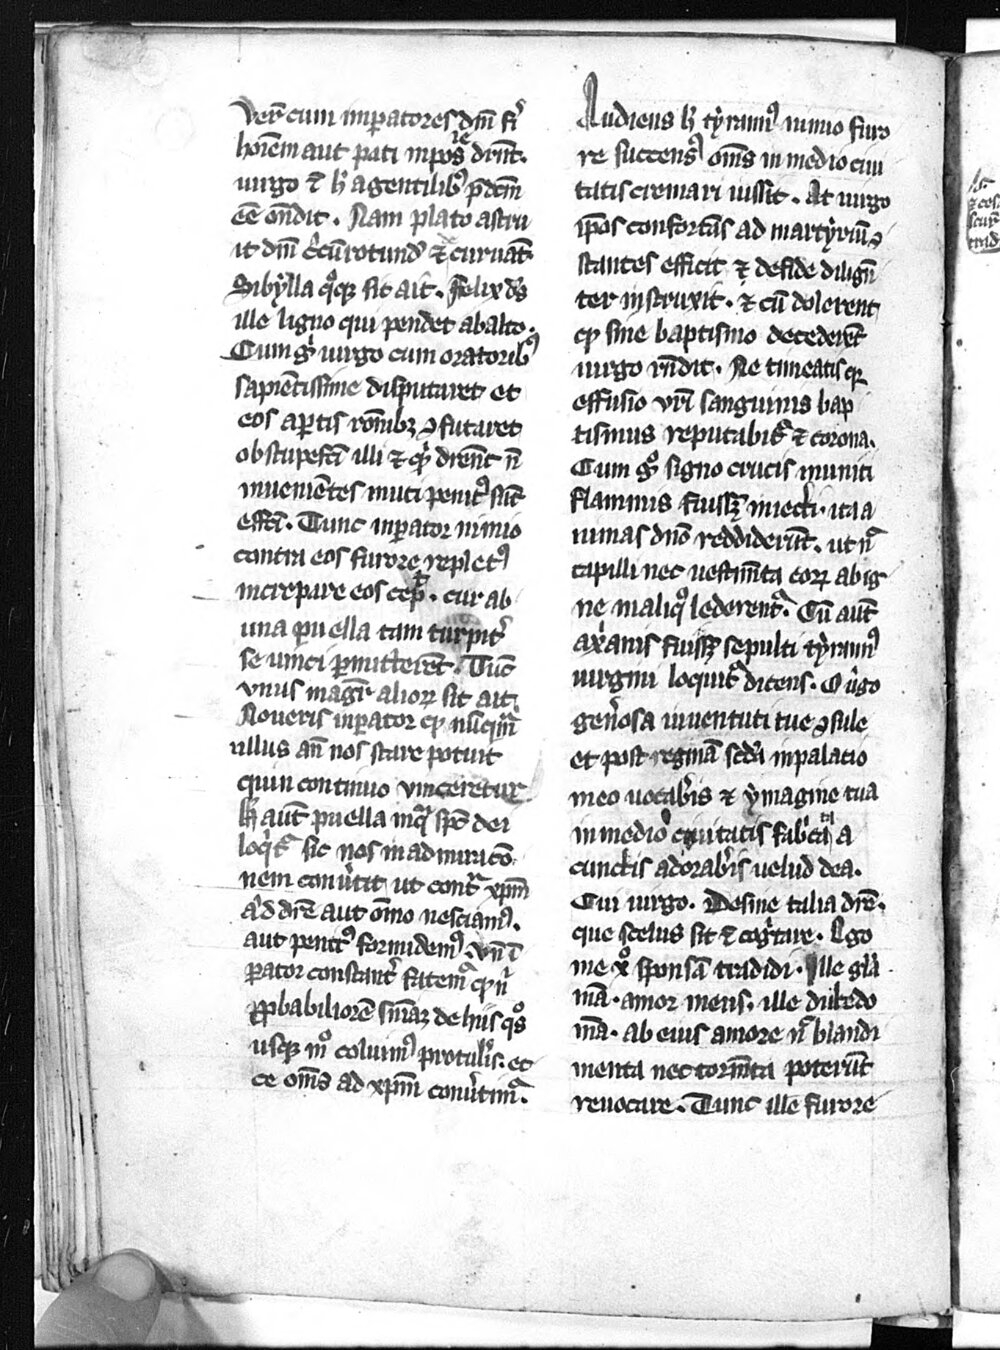 Verū cum imp̱atores dm̄ fi̾
hoīem aut pati inpos̾re dic̄nt.
uirgo & h̾ agentilib9 p̄dcm̄
ee̅ on̄dit. Nam plato astru
it dm̄ ci̾cūrotund̾ & curuat̄.
Sibẏlla qͦꝫ sic ait. Felix ds̾
ille ligno qui pendet abalto.
Cum g̾ uirgo cum oratorib9
sapiētissime disputaret et
eos ap̱tis rōnibꝫ ɔfutaret
obstupefc̄i illi & qͥ dic̄ent n̄
inueniētes muti penit9 sūt
effc̄i. Tunc inp̱ator nimio
contra eos furore replet9
increpare eos cep̱it. cur ab
una puella tam turpit̾
se uinci p̱mitterēt. Tūc
vnus magr̄ alioꝝ sic ait
Noueris inp̱ator ꝙ nūqm̄
ullus an̄ nos stare potuit
quin continuo vinceretur
h̾ aūt puella inqͣ sp̄c dei
loqͥt̾ sic nos in admiracō
nem conu̾tit ut contͣ xp̄m
aͥd dic̄e aut oīno nesciam9.
aut penit9 formidem9. vn̄ ī
p̱ator constant̾ fatem̾ ꝙ nͥ
ꝓbabiliorē sniāꝫ de hiis qͦs
usqꝫ mͦ coluim9 protul̾is. ec
ce om̄s ad xp̄m conu̾tim̾.
Audiens h̾ tẏrann9 nimio furo
re succens9 om̄s in medio ciui
tatis cremari iussit. At uirgo
ip̄os confortās ad martẏriū ɔ
stantes efficit & defide diligēn
ter instruxit. & cū dolerent
ꝙ sine baptismo decederēt
uirgo rn̄dit. Ne timeatis qꝛ
effusio vr̄i sanguinis bap
tismus reputabit̾ & corona.
Cum g̾ signo crucis muniti
flammis fuissꝫ iniecti. ita a
nimas dn̄o reddiderūt. ut nͨ
capilli nec uestim̄ta eoꝝ abig
ne in aliqͦ lederent̾. Cū aūt
axͥanis fuissꝫ sepulti tẏrann9
uirgini loquit̾ dicens. O uͥgo
gen̾osa iuuentuti tue ɔsule
et post reginā scd̾a inpalacio
meo uocab̾is & ẏmagine tua
in medio ciuitatis fab̾cata a
cunctis adorab̾is uelud dea.
Cui uirgo. Desine talia dic̄e.
que scelus sit & cogͥtare. Ego
me xͦ sponsā tradidi. Ille glͥa
mā. amor meus. ille dulcedo
mā. ab eius amore nͨ blandi
menta nec torm̄ta poterūt
reuocare. Tunc ille furore